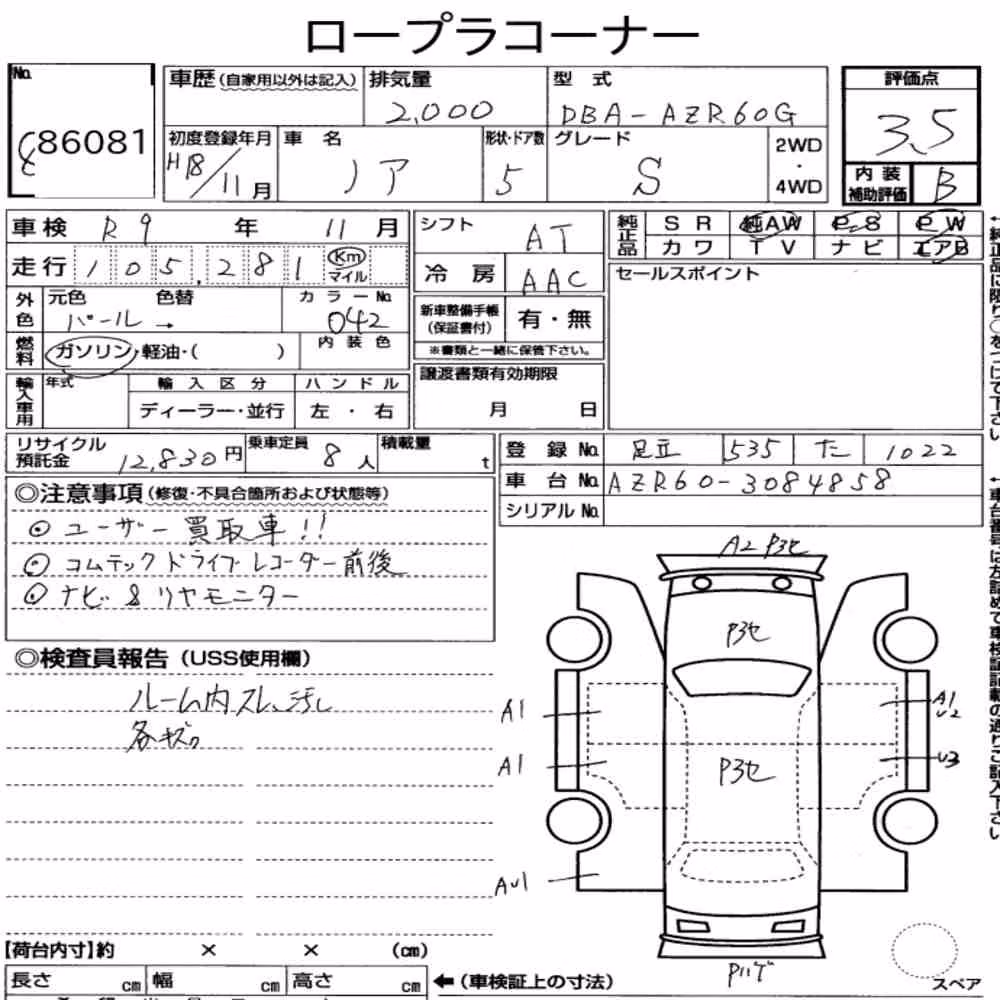 ロープラコーナー
No.
86081
車歴(自家用以外は記入)
排気量
2,000
型式
DBA-AZR60G
評価点
3.5
初度登録年月
H18/11月
車名
ノア
形状・ドア数
5
グレード
S
2WD
・
4WD
内装
補助評価
B
車検 R9年 11月
シフト
AT
純正品
SR 純AW P.S P.W
カワ TV ナビ エアB
走行 105,281 Km
マイル
冷房
AAC
セールスポイント
外色
元色 色替 カラーNo.
パール→ 042
新車整備手帳
(保証書付)
有・無
※書類と一緒に保管下さい。
燃料
ガソリン・軽油・( )
内装色
輸入車用
年式 輸入区分 ハンドル
ディーラー・並行 左・右
譲渡書類有効期限
月 日
リサイクル
預託金
12,830円
乗車定員
8人
積載量
t
登録No. 足立 535 た 1022
車台No. AZR60-3084858
シリアルNo.
◎注意事項(修復・不具合箇所および状態等)
◎ ユーザー買取車!!
◎ コムテックドライブレコーダー前後
◎ ナビ&リヤモニター
◎検査員報告(USS使用欄)
ルーム内スレ、汚レ
各キズ
A2 P3セ
P3セ
A1
A1
U2
A1
P3セ
U3
AU1
【荷台内寸】約 × × (cm)
長さ cm 幅 cm 高さ cm
←(車検証上の寸法)
スペア
↑純正品に限り○をつけて下さい
↑車台番号は方詰めで車検証記載の通りご記入下さい